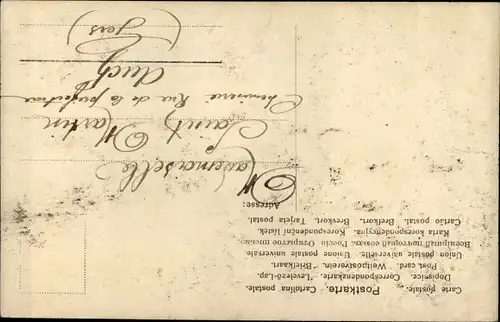 Carte postale.
Postkarte, Cartolina postale.
Dopisnice. Correspondenzkarte. "Levelező-Lap.
Post card. "Weltpostverein." "Briefkaart.
Union postale universelle. Unione postale universale.
Всемірный почтовый союзъ. Россія. Открытое письмо.
Karta korespondencyjna. Korespondenční lístek.
Cartão postal. Brefkort. Brevkort. Tarjeta postal.
Adresse:
Mademoiselle
Saint Martin
Rue de la préfecture
Auch
(Gers)